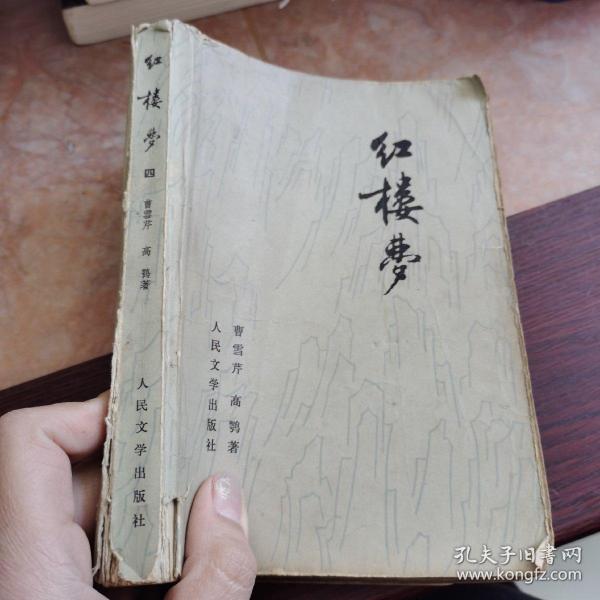 红楼梦 四 曹雪芹 高鹗著 人民文学出版社
红楼梦
曹雪芹 高鹗著
人民文学出版社
孔夫子旧书网
www.kongfz.com